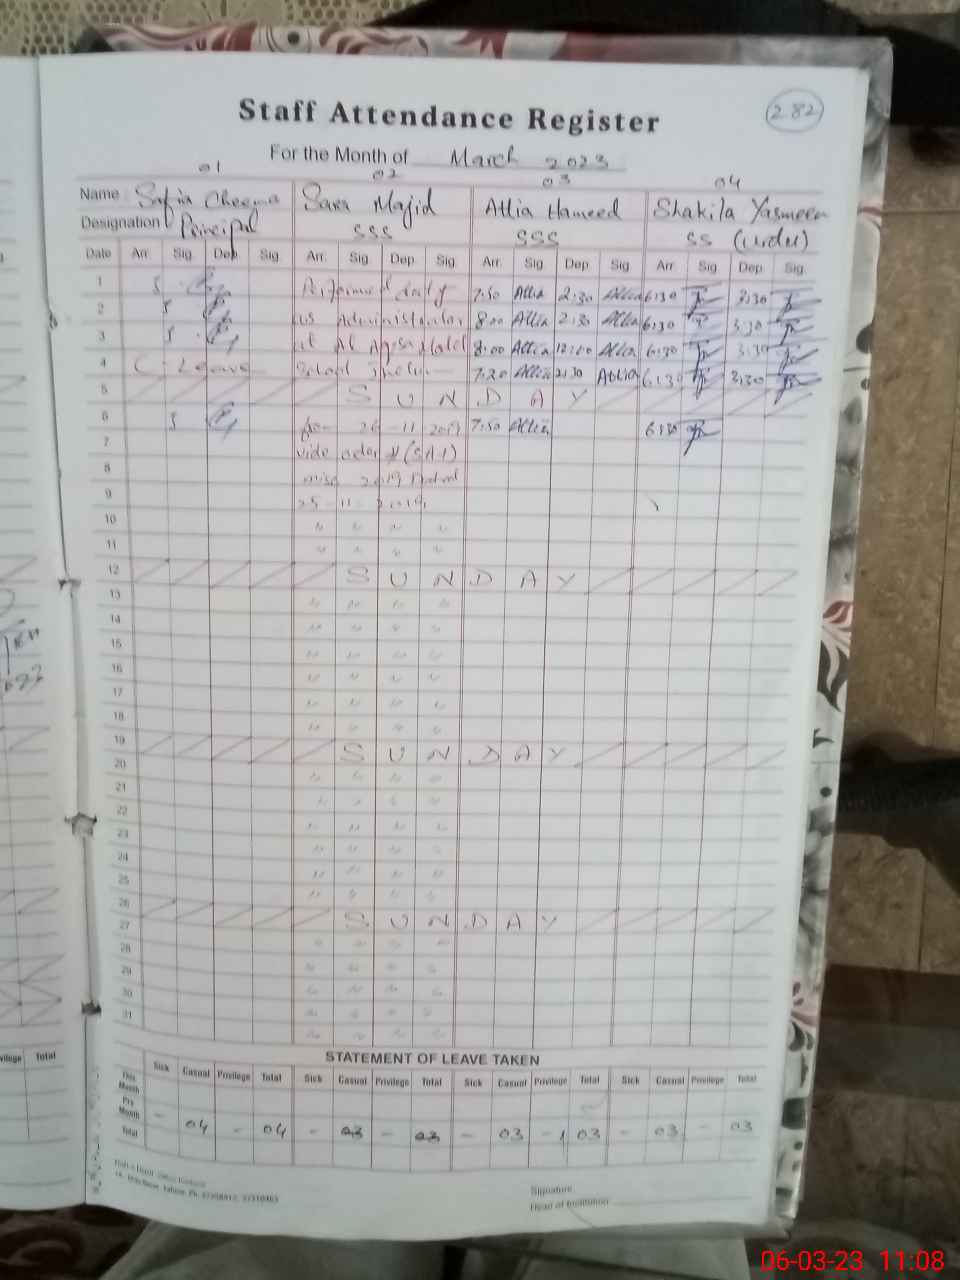 Staff Attendance Register
282
For the Month of March 2023
01 02 03 04
Name Safia Cheema Sara Majid Attia Hameed Shakila Yasmeen
Designation Principal SSS SSS SS (Urdu)
Date Arr. Sig. Dep. Sig. Arr. Sig. Dep. Sig. Arr. Sig. Dep. Sig. Arr. Sig. Dep. Sig.
1 Performed duty 7:50 Attia 2:30 Attia 6:30 3:30
2 as Administrator 8:00 Attia 2:30 Attia 6:30 3:30
3 at Al Aqsa Model 8:00 Attia 12:00 Attia 6:30 3:30
4 C. Leave School 7:20 Attia 2:30 Attia 6:30 3:30
5 S U N D A Y
6 from 26-11-2019 7:50 Attia 6:30
7 vide order # (SA1)
8 misc 2019 Dated
9 25-11-2019
10 " " " "
11 " " " "
12 S U N D A Y
13 " " " "
14 " " " "
15 " " " "
16 " " " "
17 " " " "
18 " " " "
19 S U N D A Y
20 " " " "
21 " " " "
22 " " " "
23 " " " "
24 " " " "
25 " " " "
26 S U N D A Y
27 " " " "
28 " " " "
29 " " " "
30 " " " "
31 " " " "
STATEMENT OF LEAVE TAKEN
Sick Casual Privilege Total Sick Casual Privilege Total Sick Casual Privilege Total Sick Casual Privilege Total
This Month
Pre Month
Total - 04 - 04 - 03 - 03 - 03 - 03 - 03 - 03
Signature
Head of Institution
Privilege Total
06-03-23 11:08